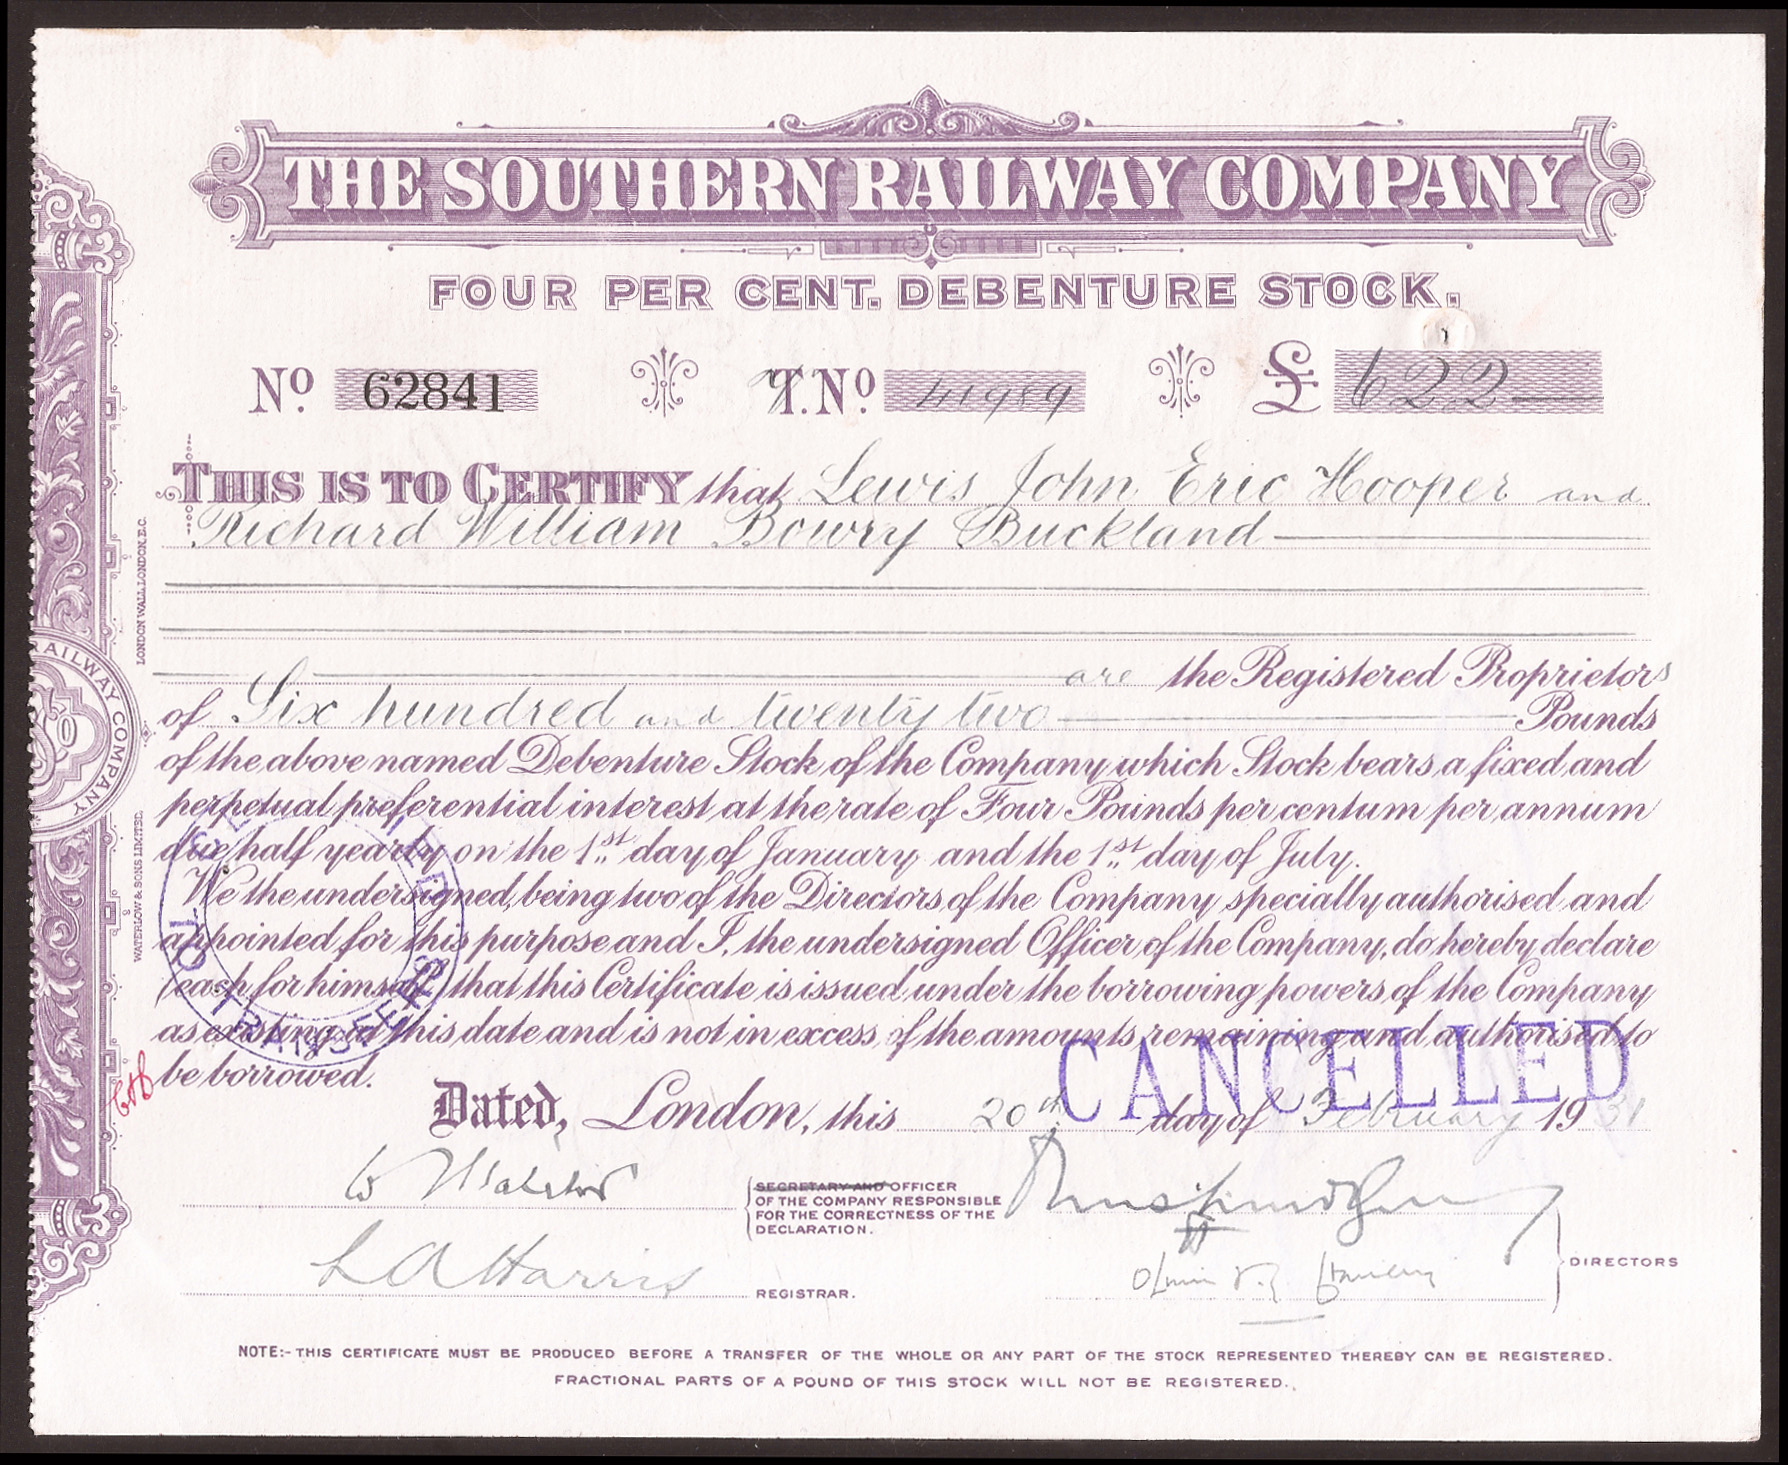 THE SOUTHERN RAILWAY COMPANY
FOUR PER CENT. DEBENTURE STOCK.
No. 62841 T. No. 41989 £ 622
THIS IS TO CERTIFY that Lewis John Eric Hooper and
Richard William Bowry Buckland
are the Registered Proprietors
of Six hundred and twenty two Pounds
of the above named Debenture Stock of the Company which Stock bears a fixed and
perpetual preferential interest at the rate of Four Pounds per centum per annum
due half yearly on the 1st day of January and the 1st day of July.
We the undersigned, being two of the Directors of the Company specially authorised and
appointed for this purpose and I, the undersigned Officer of the Company, do hereby declare
(each for himself) that this Certificate is issued under the borrowing powers of the Company
as existing at this date and is not in excess of the amounts remaining and authorised to
be borrowed.
CANCELLED
Dated, London, this 20th day of February 1931
SECRETARY AND OFFICER
OF THE COMPANY RESPONSIBLE
FOR THE CORRECTNESS OF THE
DECLARATION.
L A Harris REGISTRAR.
DIRECTORS
NOTE:- THIS CERTIFICATE MUST BE PRODUCED BEFORE A TRANSFER OF THE WHOLE OR ANY PART OF THE STOCK REPRESENTED THEREBY CAN BE REGISTERED.
FRACTIONAL PARTS OF A POUND OF THIS STOCK WILL NOT BE REGISTERED.
RAILWAY COMPANY
WATERLOW & SONS LIMITED. LONDON WALL, LONDON, E.C.
TRANSFERS